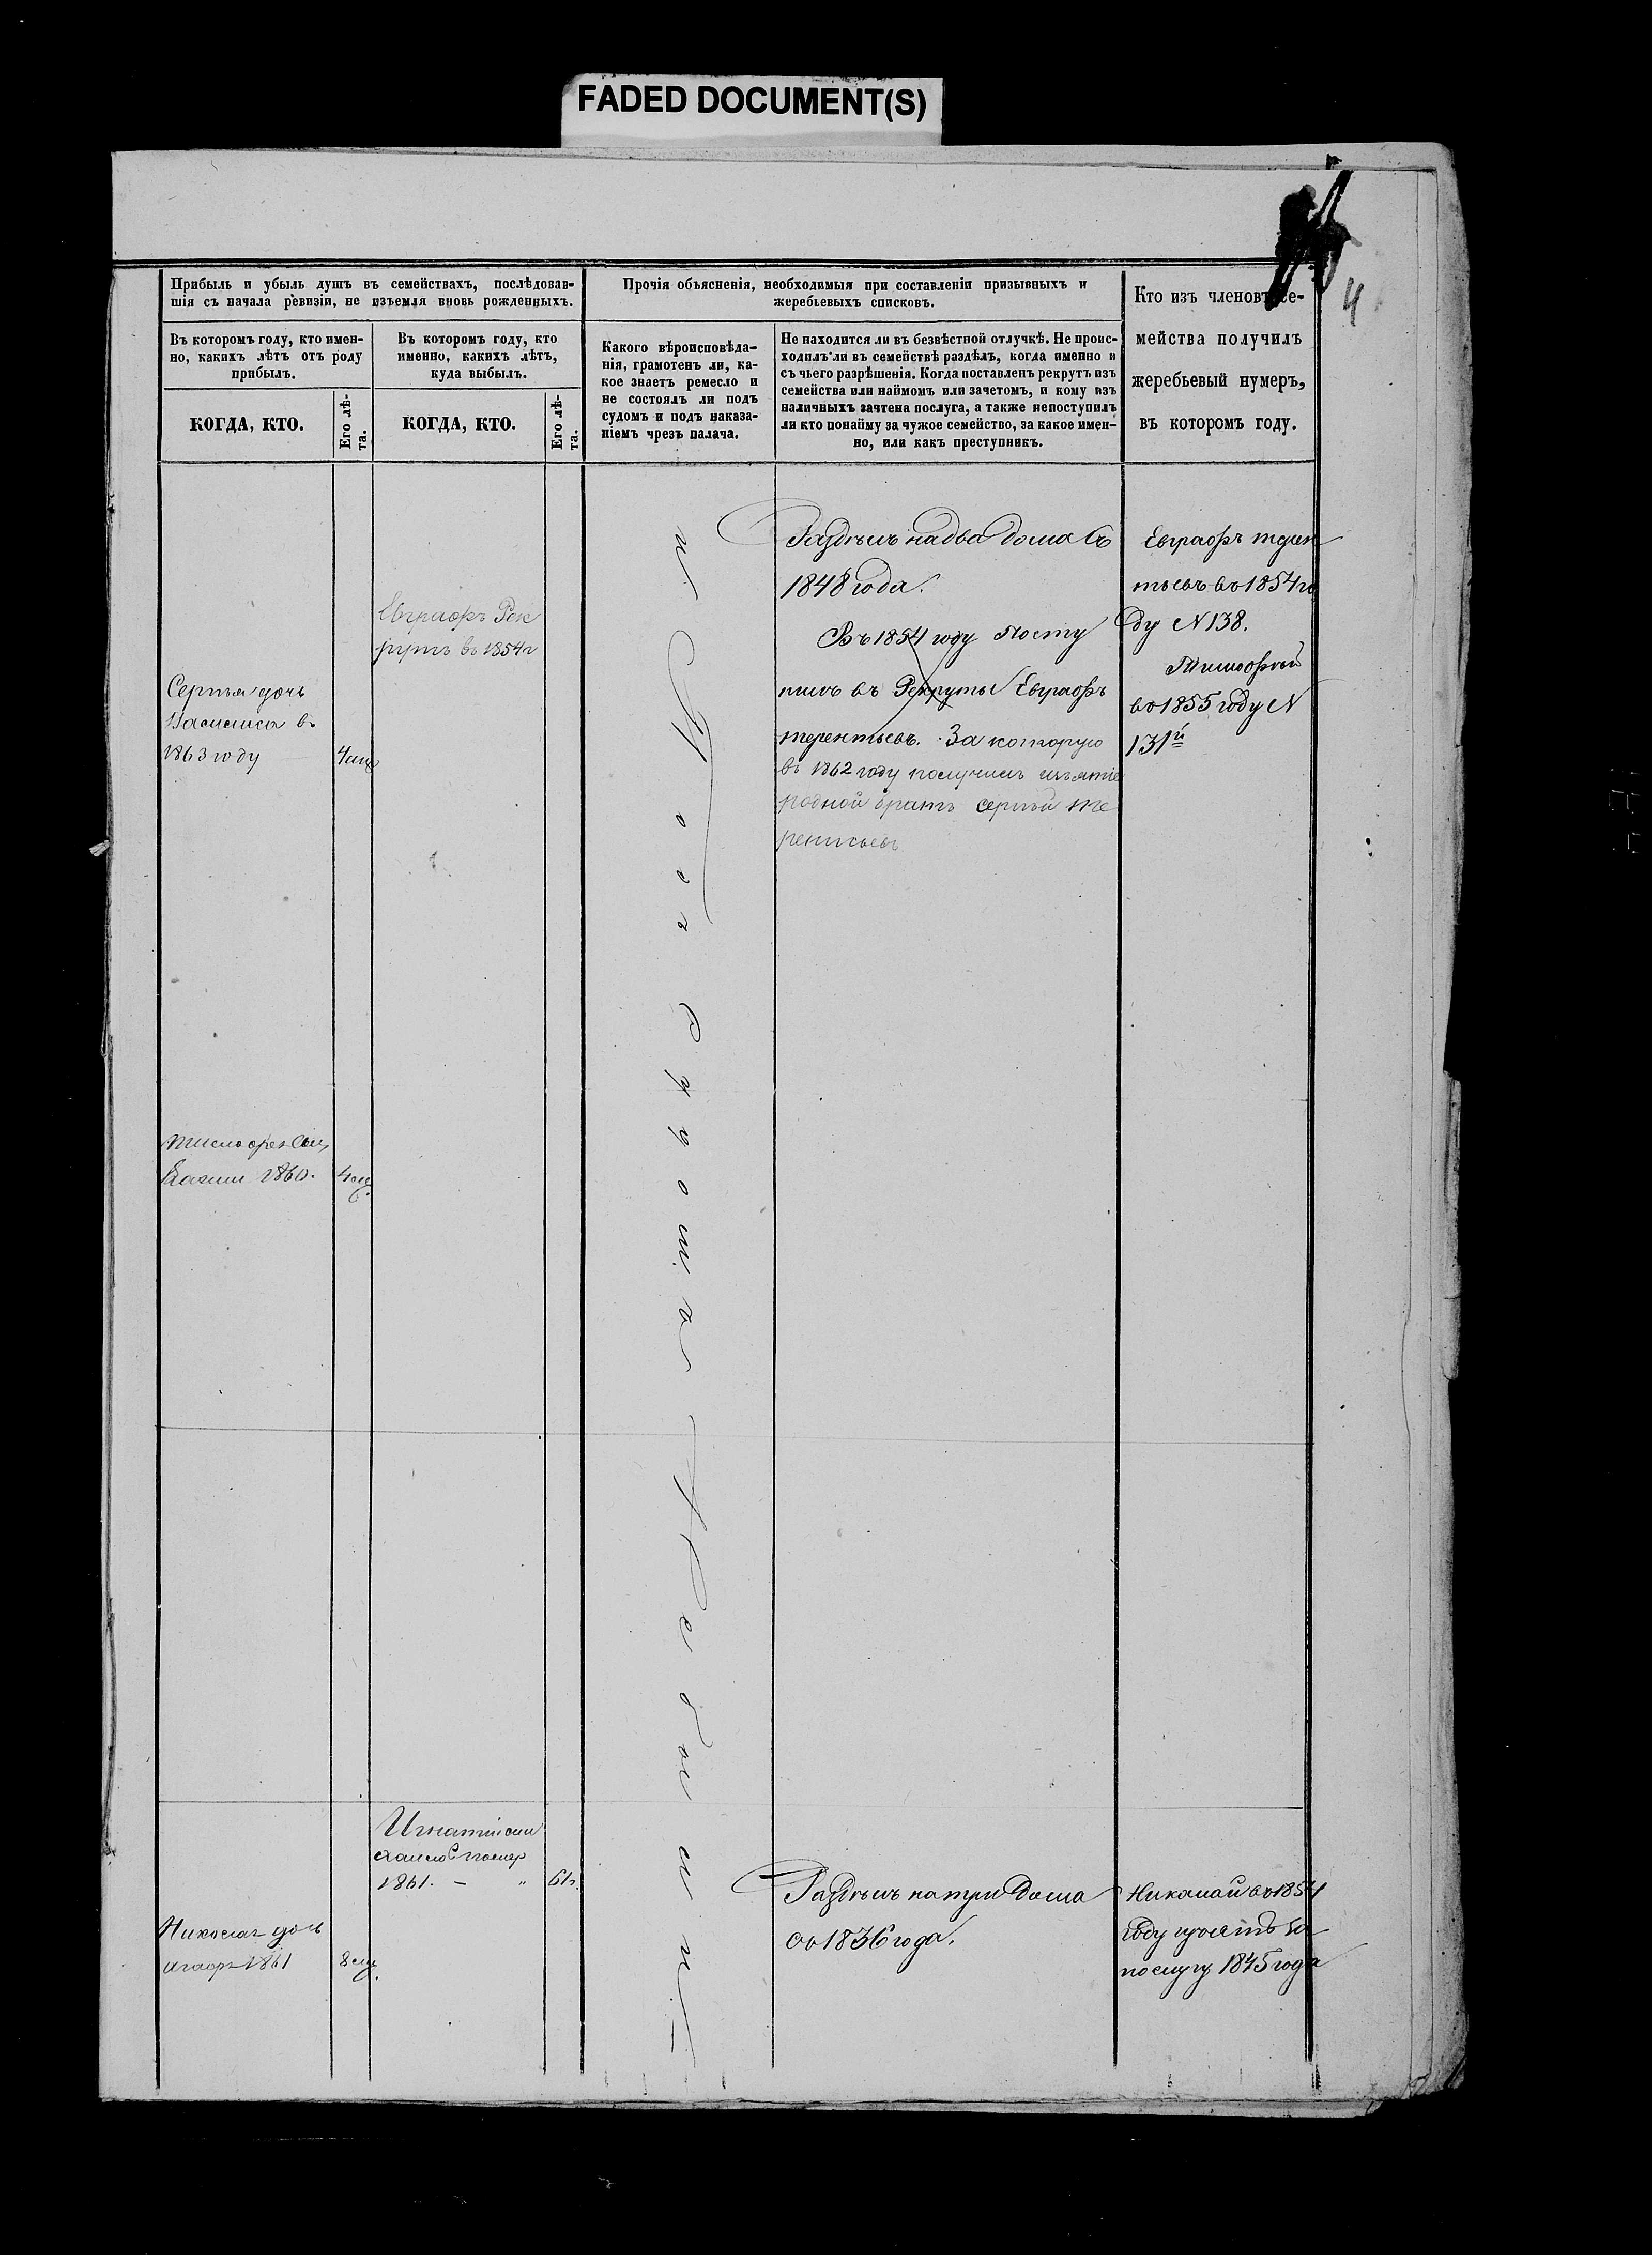 FADED DOCUMENT(S)
4
Прибыль и убыль душъ въ семействахъ, послѣдовав-
шія съ начала ревизіи, не изъемля вновь рожденныхъ.
Прочія объясненія, необходимыя при составленіи призывныхъ и
жеребьевыхъ списковъ.
Кто изъ членовъ се-
мейства получилъ
жеребьевый нумеръ,
въ которомъ году.
Въ которомъ году, кто имен-
но, какихъ лѣтъ отъ роду
прибылъ.
Въ которомъ году, кто
именно, какихъ лѣтъ,
куда выбылъ.
Какого вѣроисповѣда-
нія, грамотенъ ли, ка-
кое знаетъ ремесло и
не состоялъ ли подъ
судомъ и подъ наказа-
ніемъ чрезъ палача.
Не находится ли въ безвѣстной отлучкѣ. Не проис-
ходилъ ли въ семействѣ раздѣлъ, когда именно и
съ чьего разрѣшенія. Когда поставленъ рекрутъ изъ
семейства или наймомъ или зачетомъ, и кому изъ
наличныхъ зачтена послуга, а также непоступилъ
ли кто понайму за чужое семейство, за какое имен-
но, или какъ преступникъ.
КОГДА, КТО.
Его лѣ-
та.
КОГДА, КТО.
Его лѣ-
та.
Сергѣя дочь
въ
1863 году
Евграфъ Рек
рутъ въ 1854 г
Раздѣлъ на два дома съ
1848 года.
Въ 1854 году Посту
пилъ въ Рекруты Евграфъ
терентьевъ. За которую
въ 1862 году получилъ изъятіе
родной братъ сергѣй те
рентьевъ
Евграфъ терен
тьевъ во 1854 го
ду N 138.
Тимофѣй
во 1855 году N
131й
1860.
Игнатій
1861. - "
61г.
дочь
1861
Раздѣлъ на три дома
со 1836 года.
Николай во 1854
году
послугу 1845 года